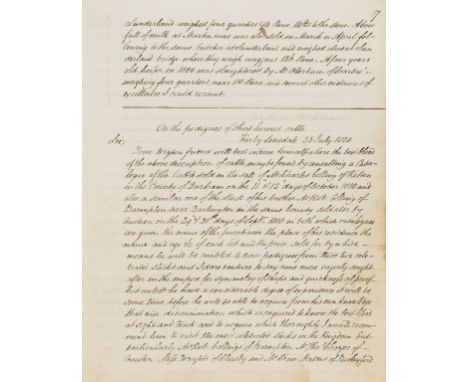 17
Sunderland weighed four quarters 64 Stone 14lbs to the stone. A Cow
full of milk at Martinmas was sold in March or April fol
lowing to the same butcher at Sunderland and weighed at Sun
derland bridge where they weigh waggons Stone. A four years
old heifer in 1800 was slaughtered by Mr of Barrow
weighing four quarters near Stone and several other instances of
excellence I could recount.
On the pedigrees of short horned cattle
Kirby Lonsdale 23 July 1820
Sir,
Your Wigton friend will best inform himself where the best blood
of the above description of cattle may be found by consulting a Cata
logue of the Cattle sold in the sale of Mr Charles Colling of Ketton
in the County of Durham on the 11 & 12 days of October 1810 and
also a similar one of the Stock of his brother Mr Robt Colling of
Barmpton near Darlington in the same County sold also by
Auction on the 29 & 30th days of Sept 1818 in both which catalogues
are given the names of the purchasers the place of their residence the
colour and age &c of each lot and the price sold for by which
means he will be enabled to trace pedigrees from these two cele
brated stocks and I dare venture to say none more eagerly sought
after in the empire for symmetry of shape and quickness of proof.
But until he have a considerable degree of experience it will be
some time before he will be able to acquire from his own knowledge
that nice discrimination which is required to know the best blood
at sight and touch and to acquire which thoroughly I would recom
mend him to visit the most celebrated stocks in the Kingdom but
particularly Mr Robt Collings of Barmpton Mr Thos Charges of
Newton Miss Wrights of Cleasby and Mr Messrs of Rushyford